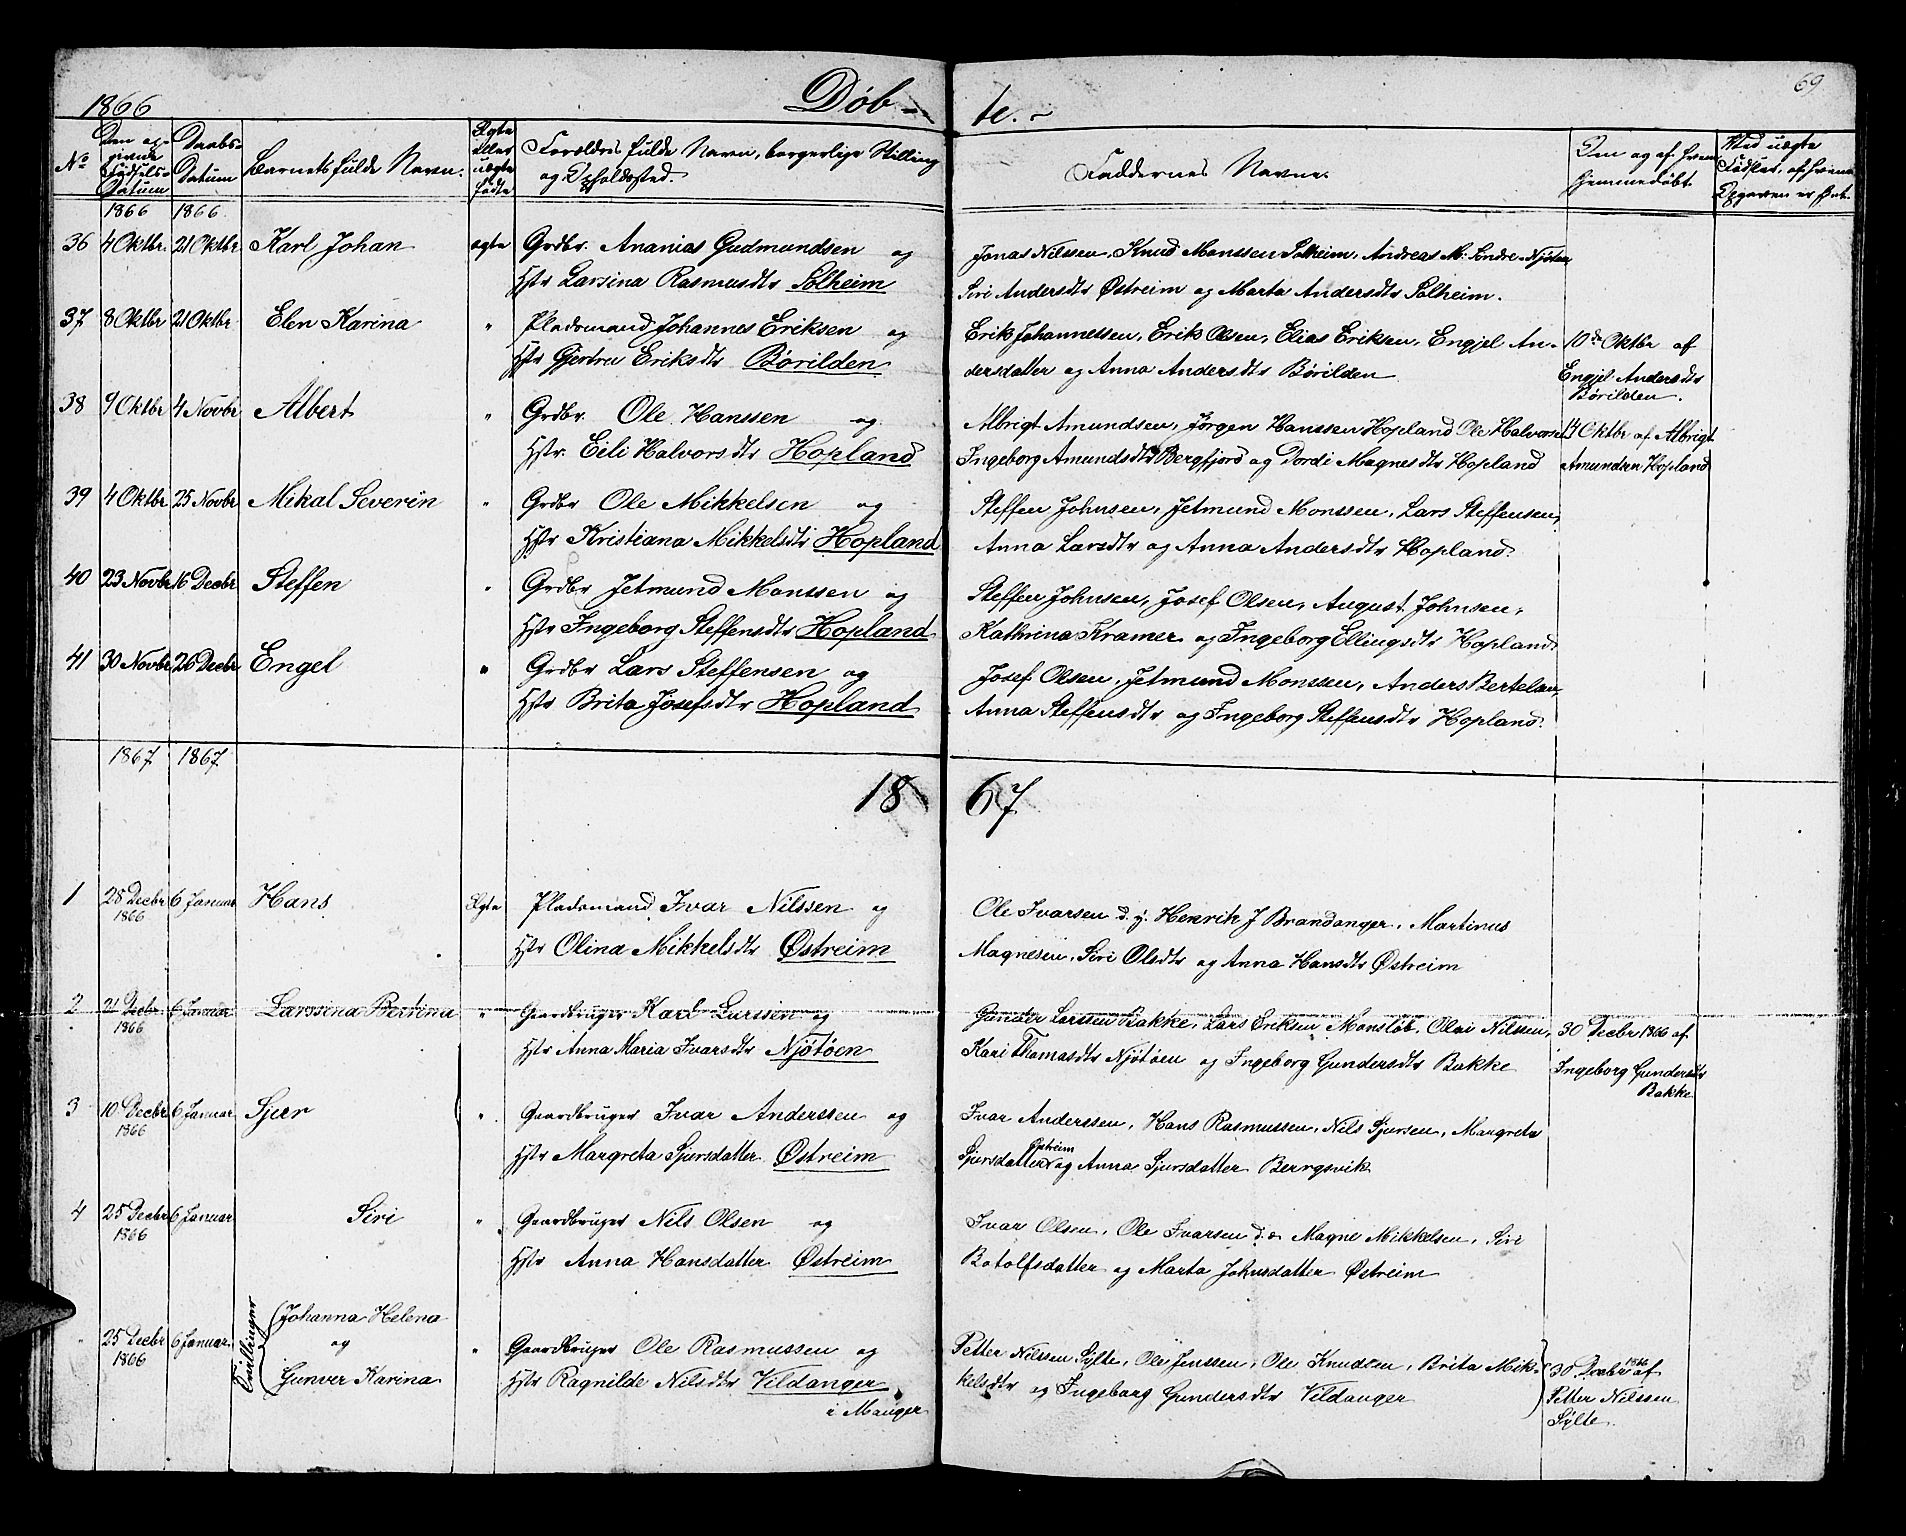 69
1866 Døb- te.-
No Den angivne Fødsels-Datum Daabs-Datum Barnets fulde Navn. Ægte eller uægte fødte Forældres fulde Navn, borgerlige Stilling og Opholdssted. Faddernes Navne. Om og af hvem hjemmedøbt.
1866 1866
36 4 Oktbr. 21 Oktbr. Karl Johan ægte Grdbr. Ananias Gudmundsen og Jonas Nilssen, Knud Monssen Solheim, Andreas M: Søndre-Njøten
Hstr Larsina Rasmusdtr Solheim Siri Andersdtr Østreim og Marta Andersdtr Solheim.
37 8 Oktbr 21 Oktbr Elen Karina " Pladsmand Johannes Eriksen og Erik Johannessen, Erik Olsen, Elias Eriksen, Engjel An- 10de Oktbr af
Hstr Gjertru Eriksdtr Børilden dersdatter og Anna Andersdtr Børilden Engjel Andersdtr
Børilden.
38 9 Oktbr 4 Novbr Albert " Grdbr. Ole Hanssen og Albrigt Amundsen, Jörgen Hanssen Hopland Ole Halvors Oktbr af Albrigt
Hstr. Eili Halvorsdtr Hopland Ingeborg Amundsdtr Bergfjord og Dordi Magnesdtr Hopland Amundsen Hopland
39 4 Oktbr 25 Novbr Mikal Severin " Grdbr Ole Mikkelsen og Steffen Johnsen, Jetmund Monssen, Lars Steffensen,
Hstr Kristiana Mikkelsdtr Hopland Anna Larsdtr og Anna Andersdtr Hopland.
40 23 Novbr 16 Decbr Steffen " Grdbr Jetmund Monssen og Steffen Johnsen, Josef Olsen, August Johnsen,
Hstr Ingeborg Steffensdtr Hopland Kathrina Kramer og Ingeborg Ellingsdtr Hopland.
41 30 Novbr 26 Decbr Engel " Grdbr Lars Steffensen og Josef Olsen, Jetmund Monssen, Anders Bertelsen,
Hstr Brita Josefsdtr Hopland Anna Steffensdtr og Ingeborg Steffensdtr Hopland.
1867 1867
18 67
1 28 Decbr 1866 6 Januar Hans Ægte Pladsmand Ivar Nilssen og Ole Ivarsen d. y. Henrik J Brandanger, Martinus
Hstr Olina Mikkelsdtr Østreim Magnesen, Siri Olsdtr og Anna Hansdtr Østreim
2 21 Decbr 1866 6 Januar Larssina Bertina " Gaardbruger Karl Larssen og Gunder Larssen Bakke, Lars Eriksen Monsløb, Olai Nilssen, 30 Decbr 1866 af
Hstr Anna Maria Ivarsdtr Njøtøen Kari Thomasdtr Njøtøen og Ingeborg Gundersdtr Bakke Ingeborg Gundersdtr
Bakke
3 10 Decbr 1866 6 Januar Sjur " Gaardbruger Ivar Anderssen og Ivar Anderssen, Hans Rasmussen, Nils Sjursen, Margreta
Hstr Margreta Sjursdatter Østreim Sjursdatter Østreim og Anna Sjursdatter Bergsvik
4 25 Decbr 1866 6 Januar Siri " Gaardbruger Nils Olsen og Ivar Olsen, Ole Ivarsen d. æ Magne Mikkelsen, Siri
Hstr Anna Hansdatter Østreim Botolfsdatter og Marta Johnsdatter Østreim
" 25 Decbr 1866 6 Januar. Tvillinger Johanna Helena og Gunver Karina " Gaardbruger Ole Rasmussen og Petter Nilssen Sylte, Ole Jenssen, Ole Knudsen, Brita Mik- 30 Decbr 1866 af
Hstr Ragnilde Nilsdtr Vildanger kelsdtr og Ingeborg Gundersdtr Vildanger Petter Nilssen
i Manger Sylte.